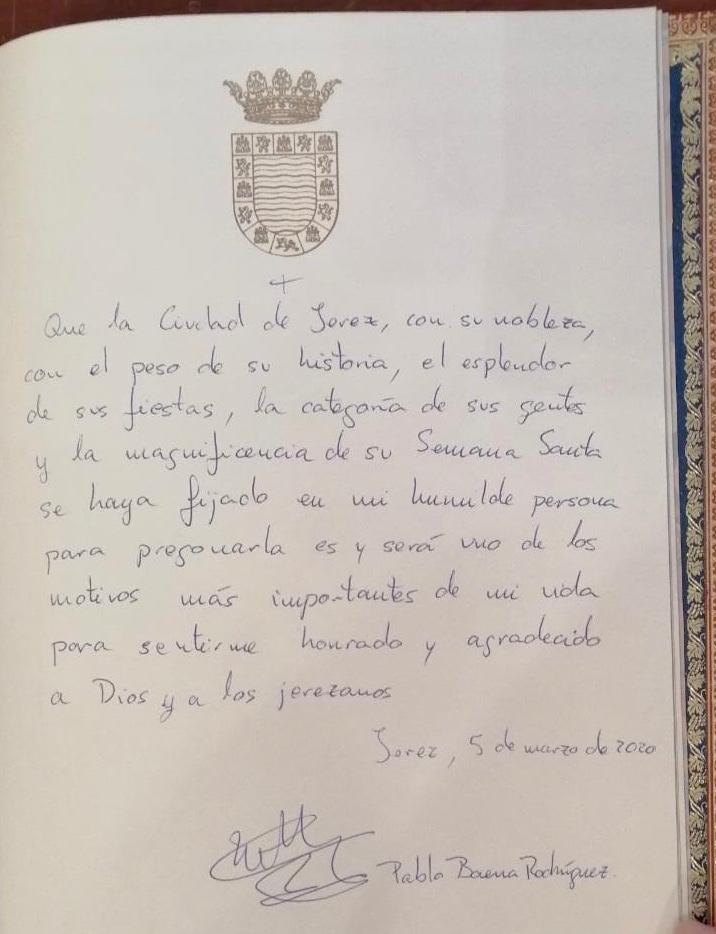 +
Que la Ciudad de Jerez, con su nobleza,
con el peso de su historia, el esplendor
de sus fiestas, la categoría de sus gentes
y la magnificencia de su Semana Santa
se haya fijado en mi humilde persona
para pregonarla es y será uno de los
motivos más importantes de mi vida
para sentirme honrado y agradecido
a Dios y a los jerezanos
Jerez, 5 de marzo de 2020
Pablo Baena Rodríguez.